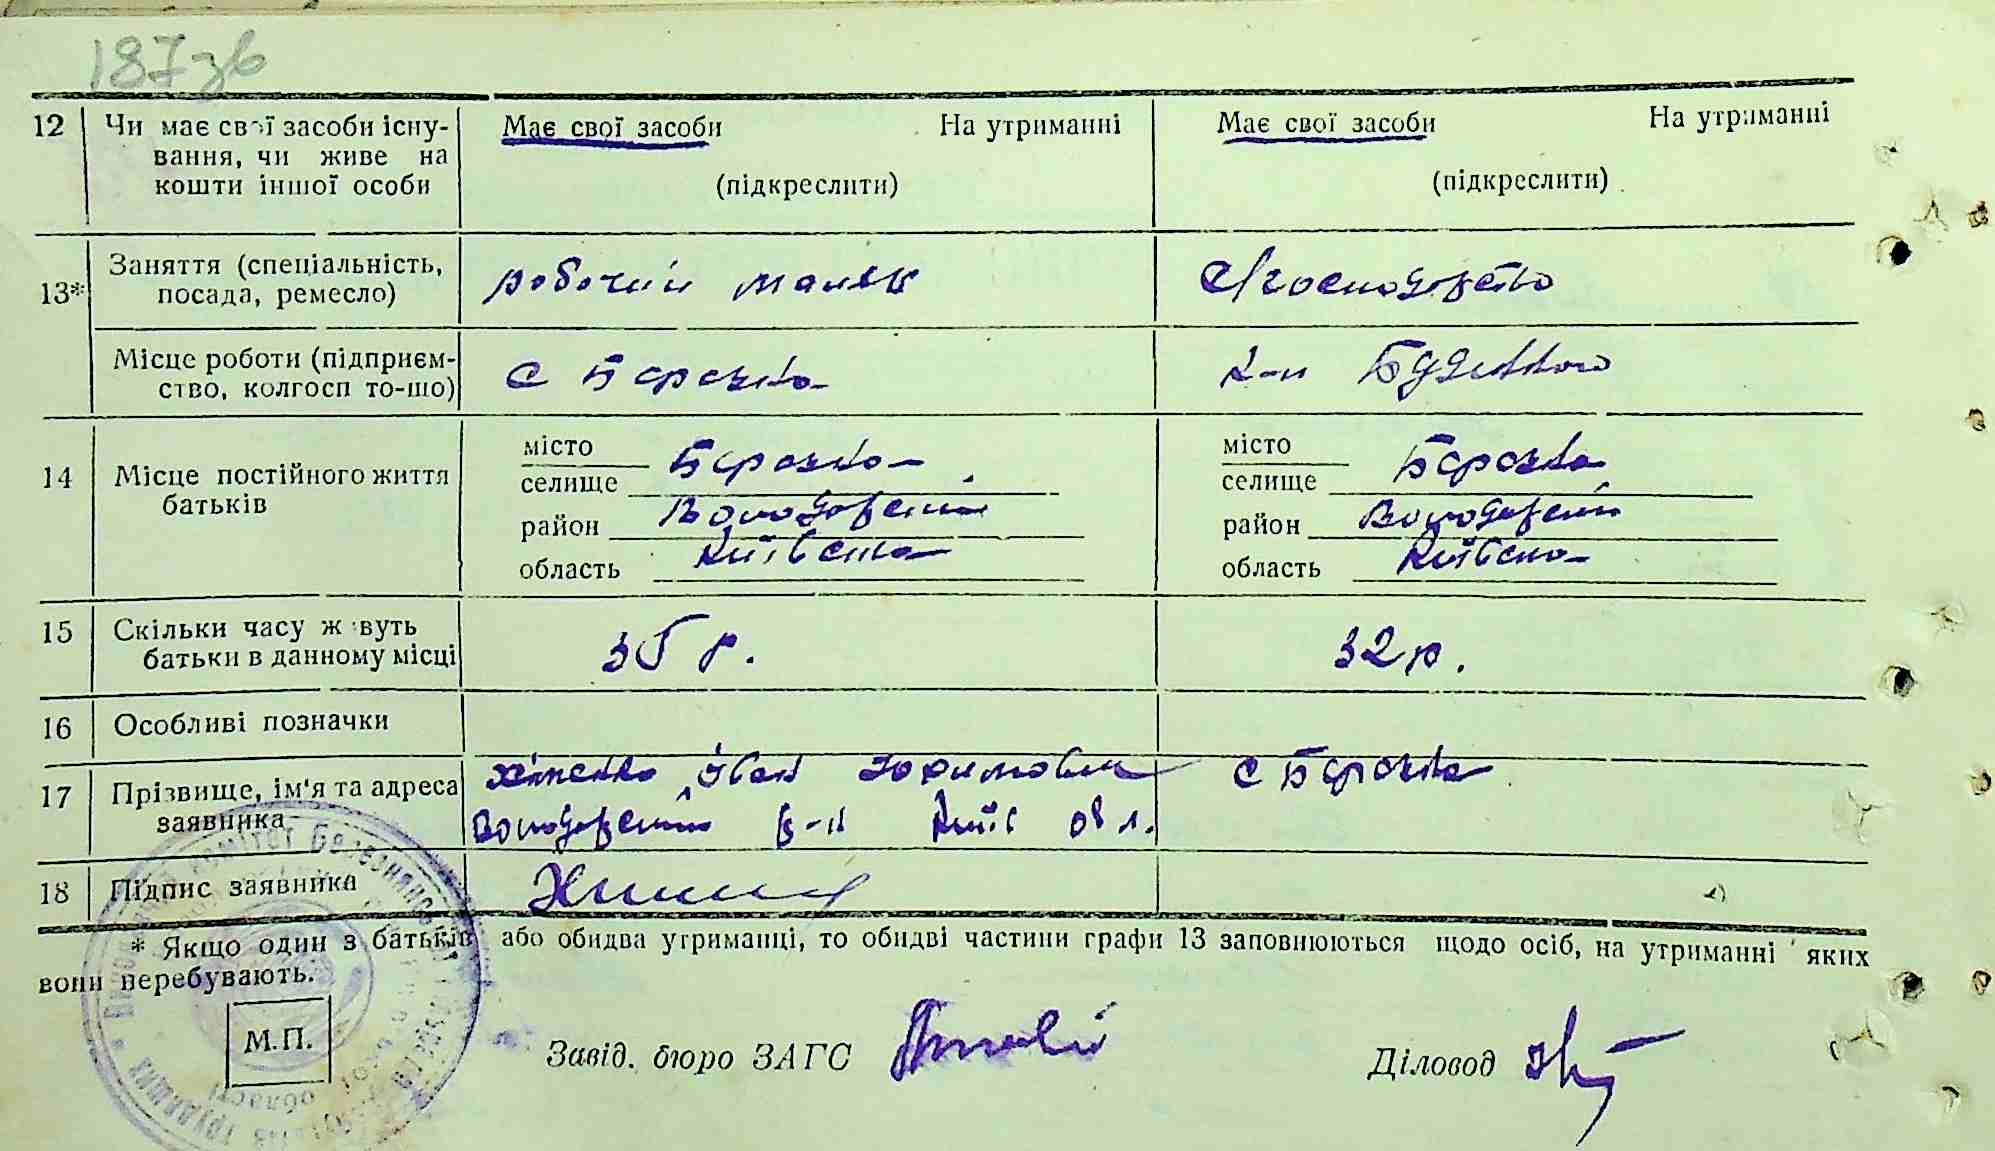 187зв
12 Чи має свої засоби існу- Має свої засоби На утриманні Має свої засоби На утриманні
вання, чи живе на
кошти іншої особи (підкреслити) (підкреслити)
13* Заняття (спеціальність, посада, ремесло) робочий маляр с/господарство
Місце роботи (підприєм- с Березна к-п Будьонного
ство, колгосп то-що)
14 Місце постійного життя батьків
місто Березна місто Березна
селище селище
район Володарський район Володарський
область Київська область Київська
15 Скільки часу живуть 35 р. 32 р.
батьки в данному місці
16 Особливі позначки
17 Прізвище, ім'я та адреса Іван Юхимович с Березна
заявника Володарський р-н Київ обл.
18 Підпис заявника
* Якщо один з батьків або обидва утриманці, то обидві частини графи 13 заповнюються щодо осіб, на утриманні яких
вони перебувають.
М.П. Завід. бюро ЗАГС Діловод